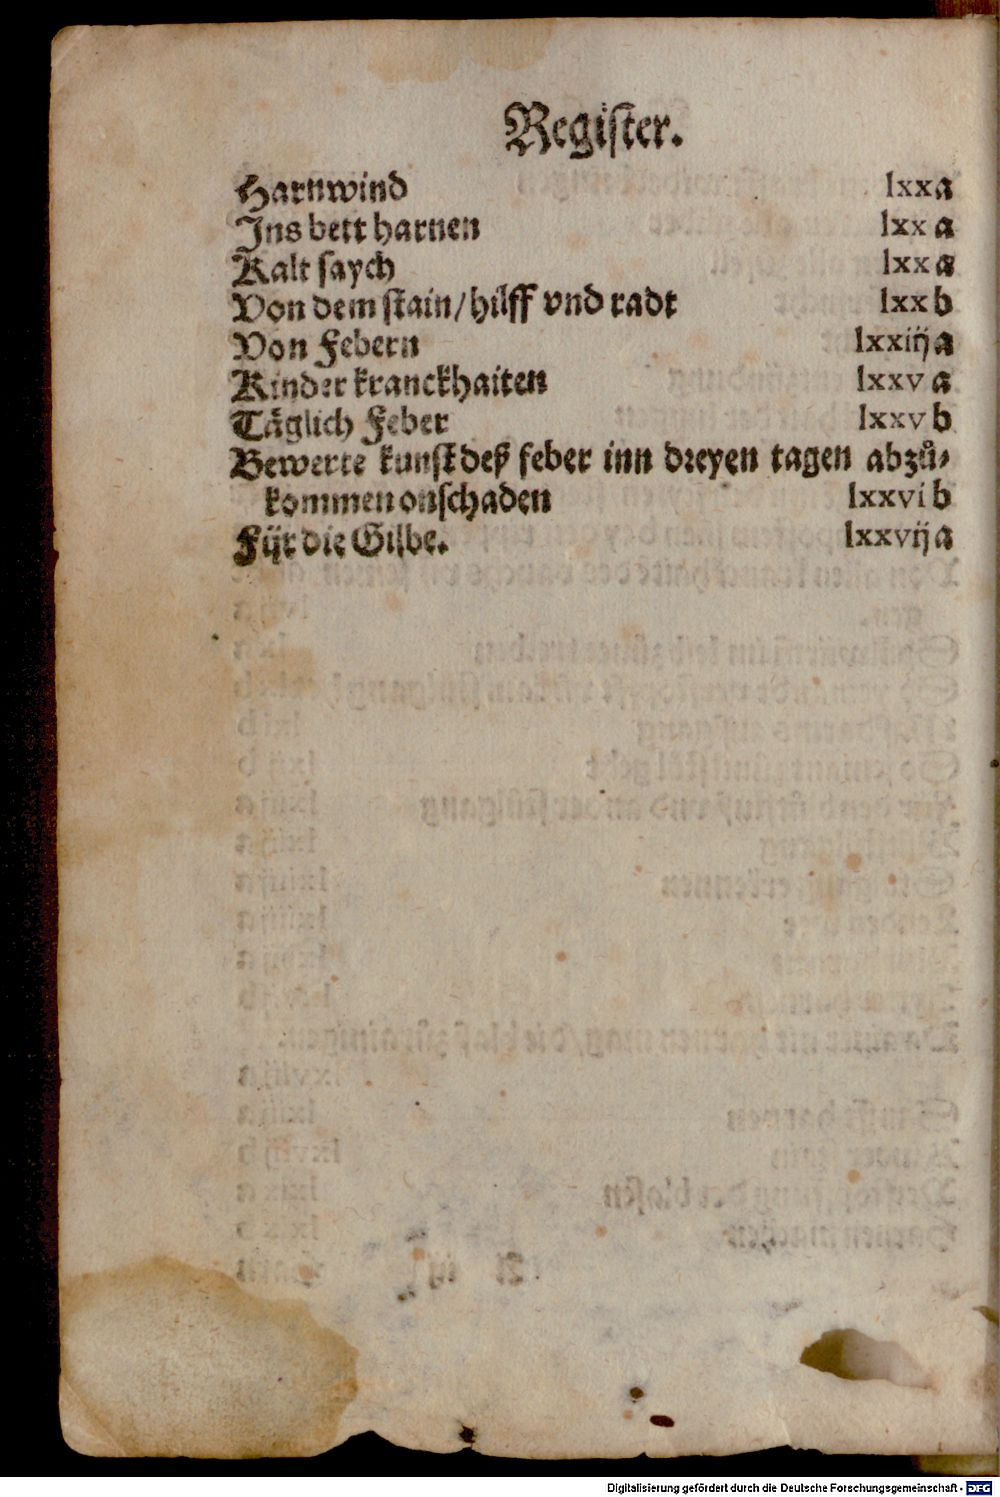 Register.
Harnwind lxx a
Ins bett harnen lxx a
Kalt saych lxx a
Von dem stain/ hilff vnd radt lxx b
Von Febern lxxiij a
Kinder kranckhaiten lxxv a
Täglich Feber lxxv b
Bewerte kunst deß feber inn dreyen tagen abzů-
kommen on schaden lxxvi b
Für die Gilbe. lxxvij a
Digitalisierung gefördert durch die Deutsche Forschungsgemeinschaft - DFG